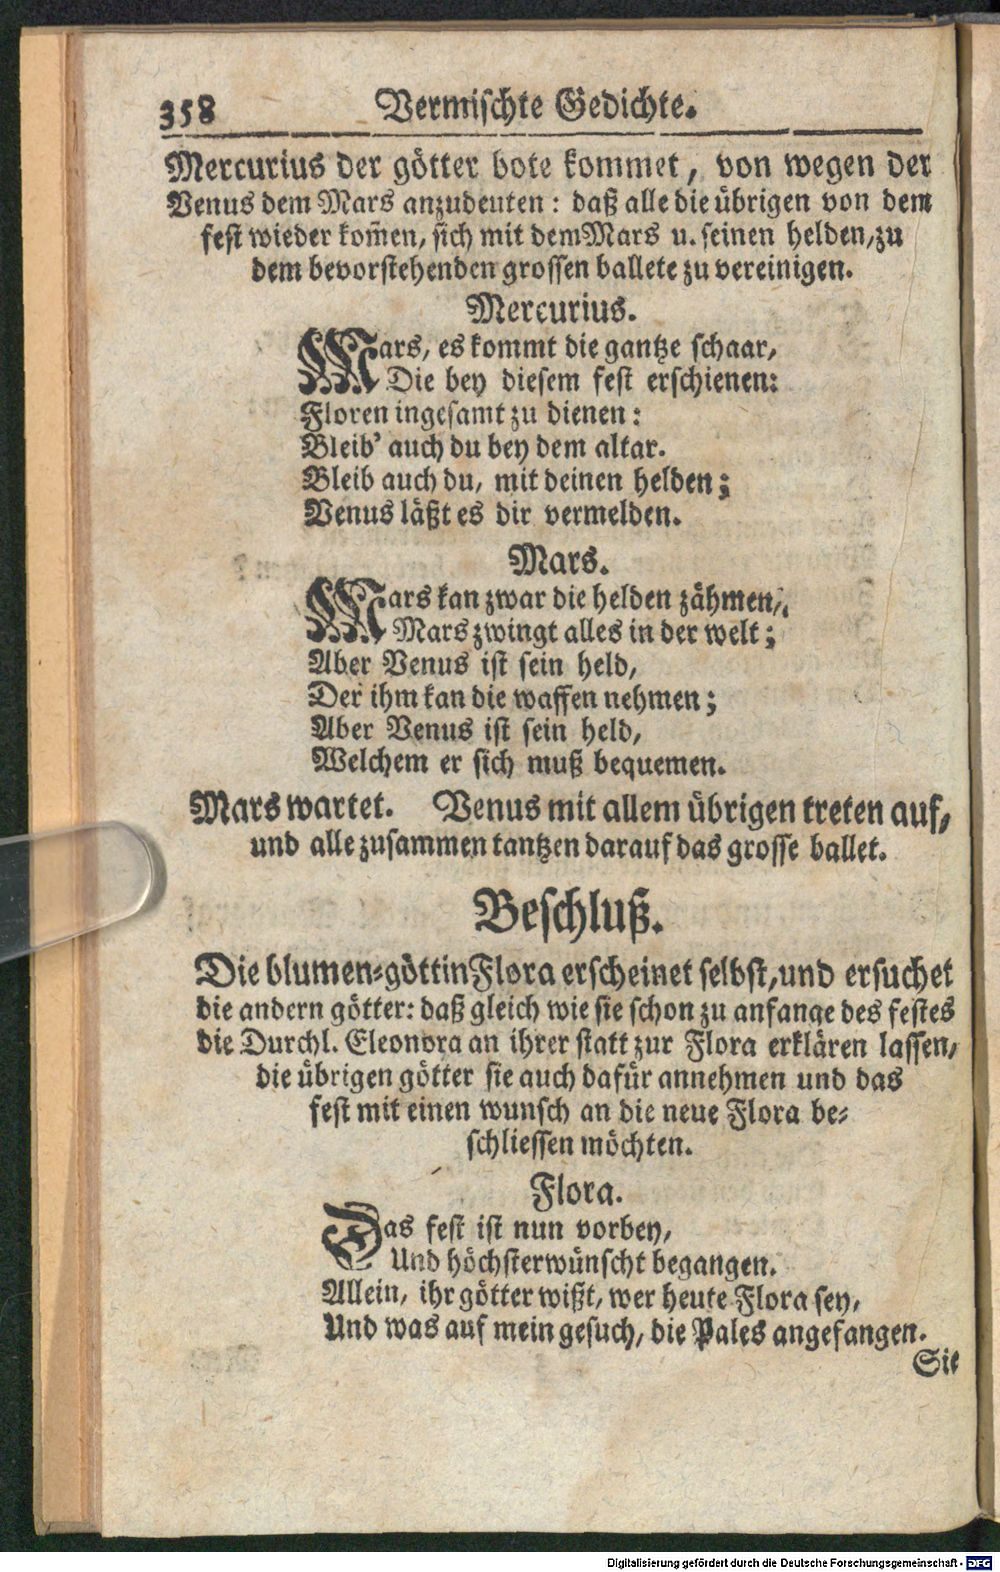 358 Vermischte Gedichte.
Mercurius der götter bote kommet, von wegen der
Venus dem Mars anzudeuten: daß alle die übrigen von dem
fest wieder kom̃en, sich mit dem Mars u. seinen helden, zu
dem bevorstehenden grossen ballete zu vereinigen.
Mercurius.
Mars, es kommt die gantze schaar,
Die bey diesem fest erschienen:
Floren ingesamt zu dienen:
Bleib' auch du bey dem altar.
Bleib auch du, mit deinen helden;
Venus läßt es dir vermelden.
Mars.
Mars kan zwar die helden zähmen,
Mars zwingt alles in der welt;
Aber Venus ist sein held,
Der ihm kan die waffen nehmen;
Aber Venus ist sein held,
Welchem er sich muß bequemen.
Mars wartet. Venus mit allem übrigen treten auf,
und alle zusammen tantzen darauf das grosse ballet.
Beschluß.
Die blumen-göttin Flora erscheinet selbst, und ersuchet
die andern götter: daß gleich wie sie schon zu anfange des festes
die Durchl. Eleonora an ihrer statt zur Flora erklären lassen,
die übrigen götter sie auch dafür annehmen und das
fest mit einen wunsch an die neue Flora be-
schliessen möchten.
Flora.
Das fest ist nun vorbey,
Und höchsterwünscht begangen.
Allein, ihr götter wißt, wer heute Flora sey,
Und was auf mein gesuch, die Pales angefangen.
Sie
Digitalisierung gefördert durch die Deutsche Forschungsgemeinschaft - DFG